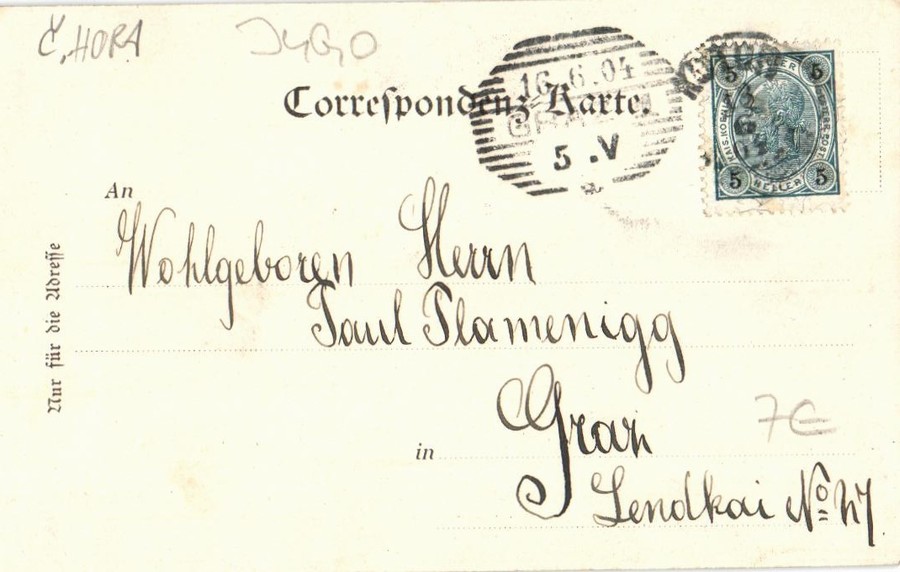 Č. HORA
JUGO
Correspondenz-Karte
16.6.04
GRAZ
5.V
5 HELLER 5
KAIS. KOENIGL. OESTERR. POST.
5 HELLER 5
An
Wohlgeboren Herrn
Paul Plamenigg
Nur für die Adresse
7€
in Graz
Lendkai No 47